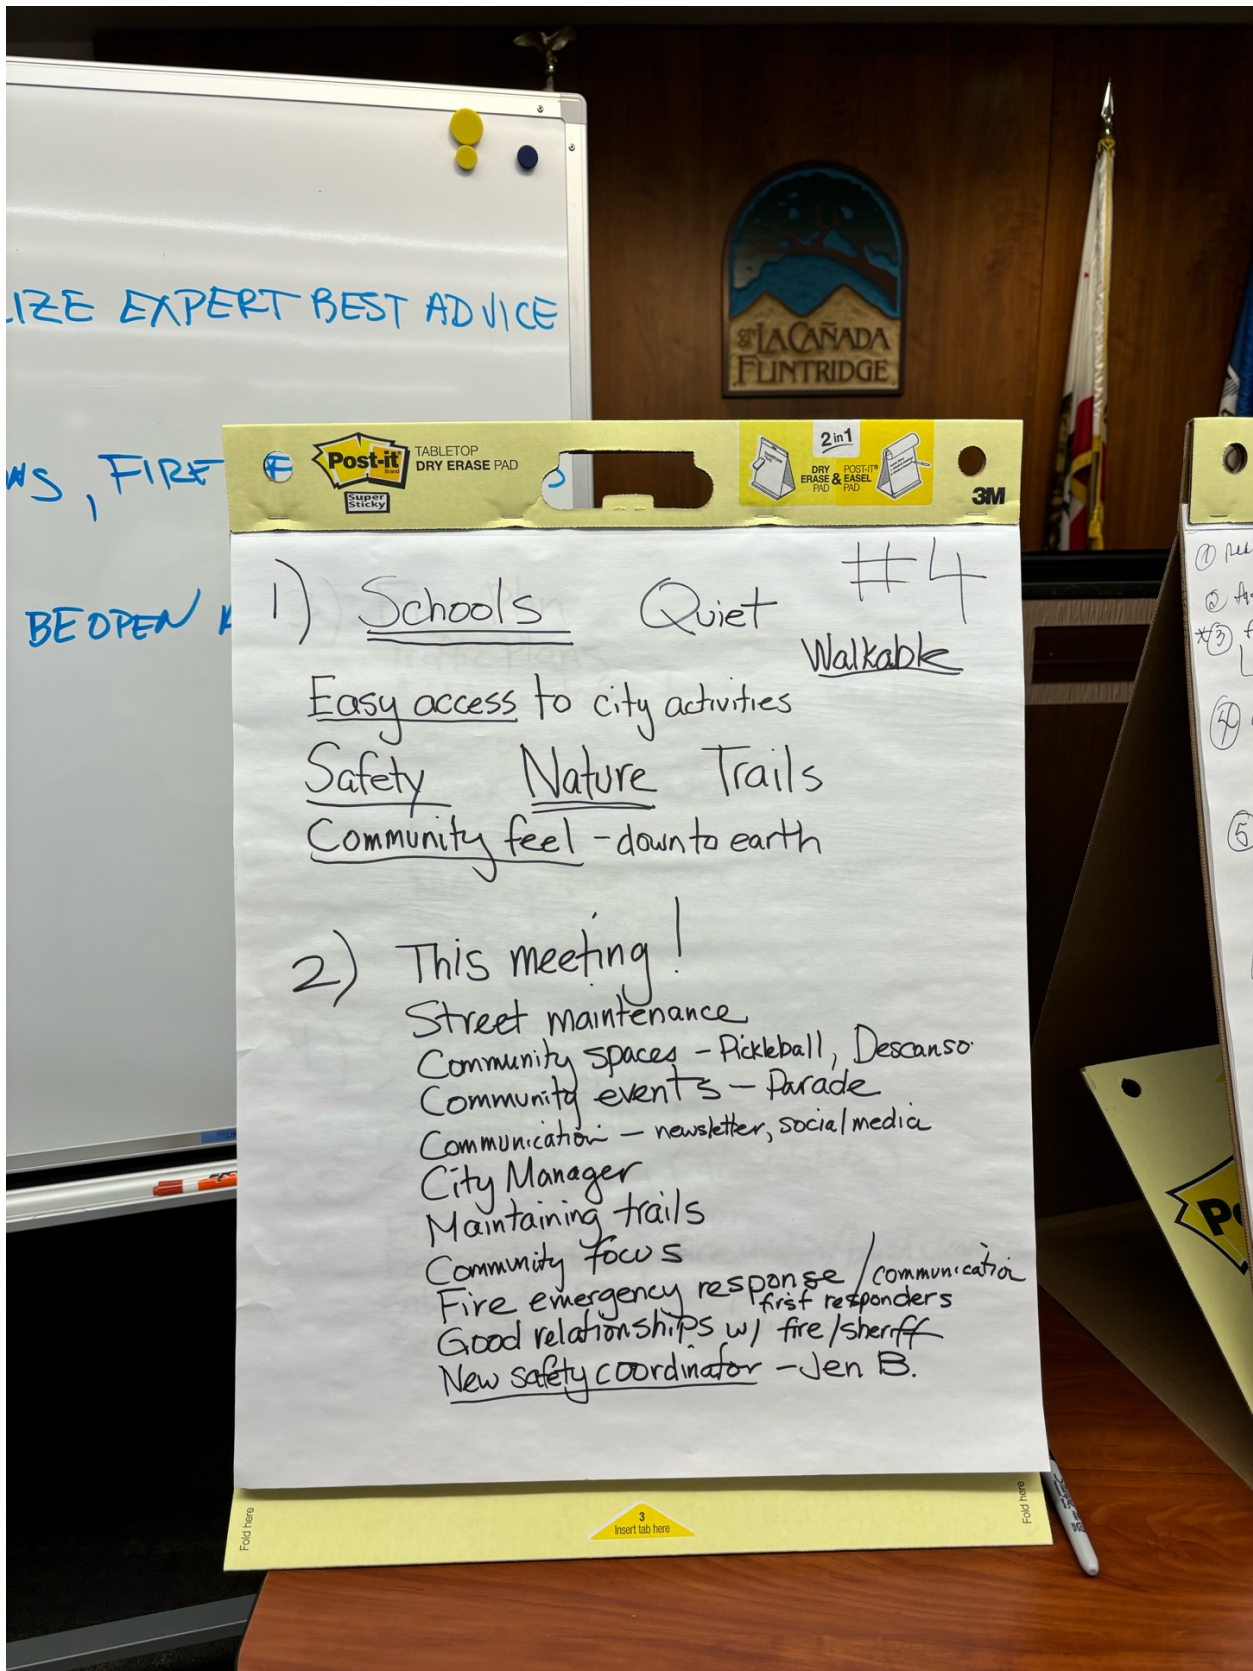 LIZE EXPERT BEST ADVICE
, FIRE
BE OPEN
LA CAÑADA
FLINTRIDGE
Post-it
Brand
Super
Sticky
TABLETOP
DRY ERASE PAD
2 in 1
DRY ERASE PAD & POST-IT® EASEL PAD
3M
#4
1) Schools Quiet
Walkable
Easy access to city activities
Safety Nature Trails
Community feel - down to earth
2) This meeting!
Street maintenance
Community spaces - Pickleball, Descanso
Community events - Parade
Communication - newsletter, social media
City Manager
Maintaining trails
Community focus
Fire emergency response / communication
first responders
Good relationships w/ fire/sheriff
New safety coordinator - Jen B.
Fold here
3
Insert tab here
Fold here
1
2
*3
4
5